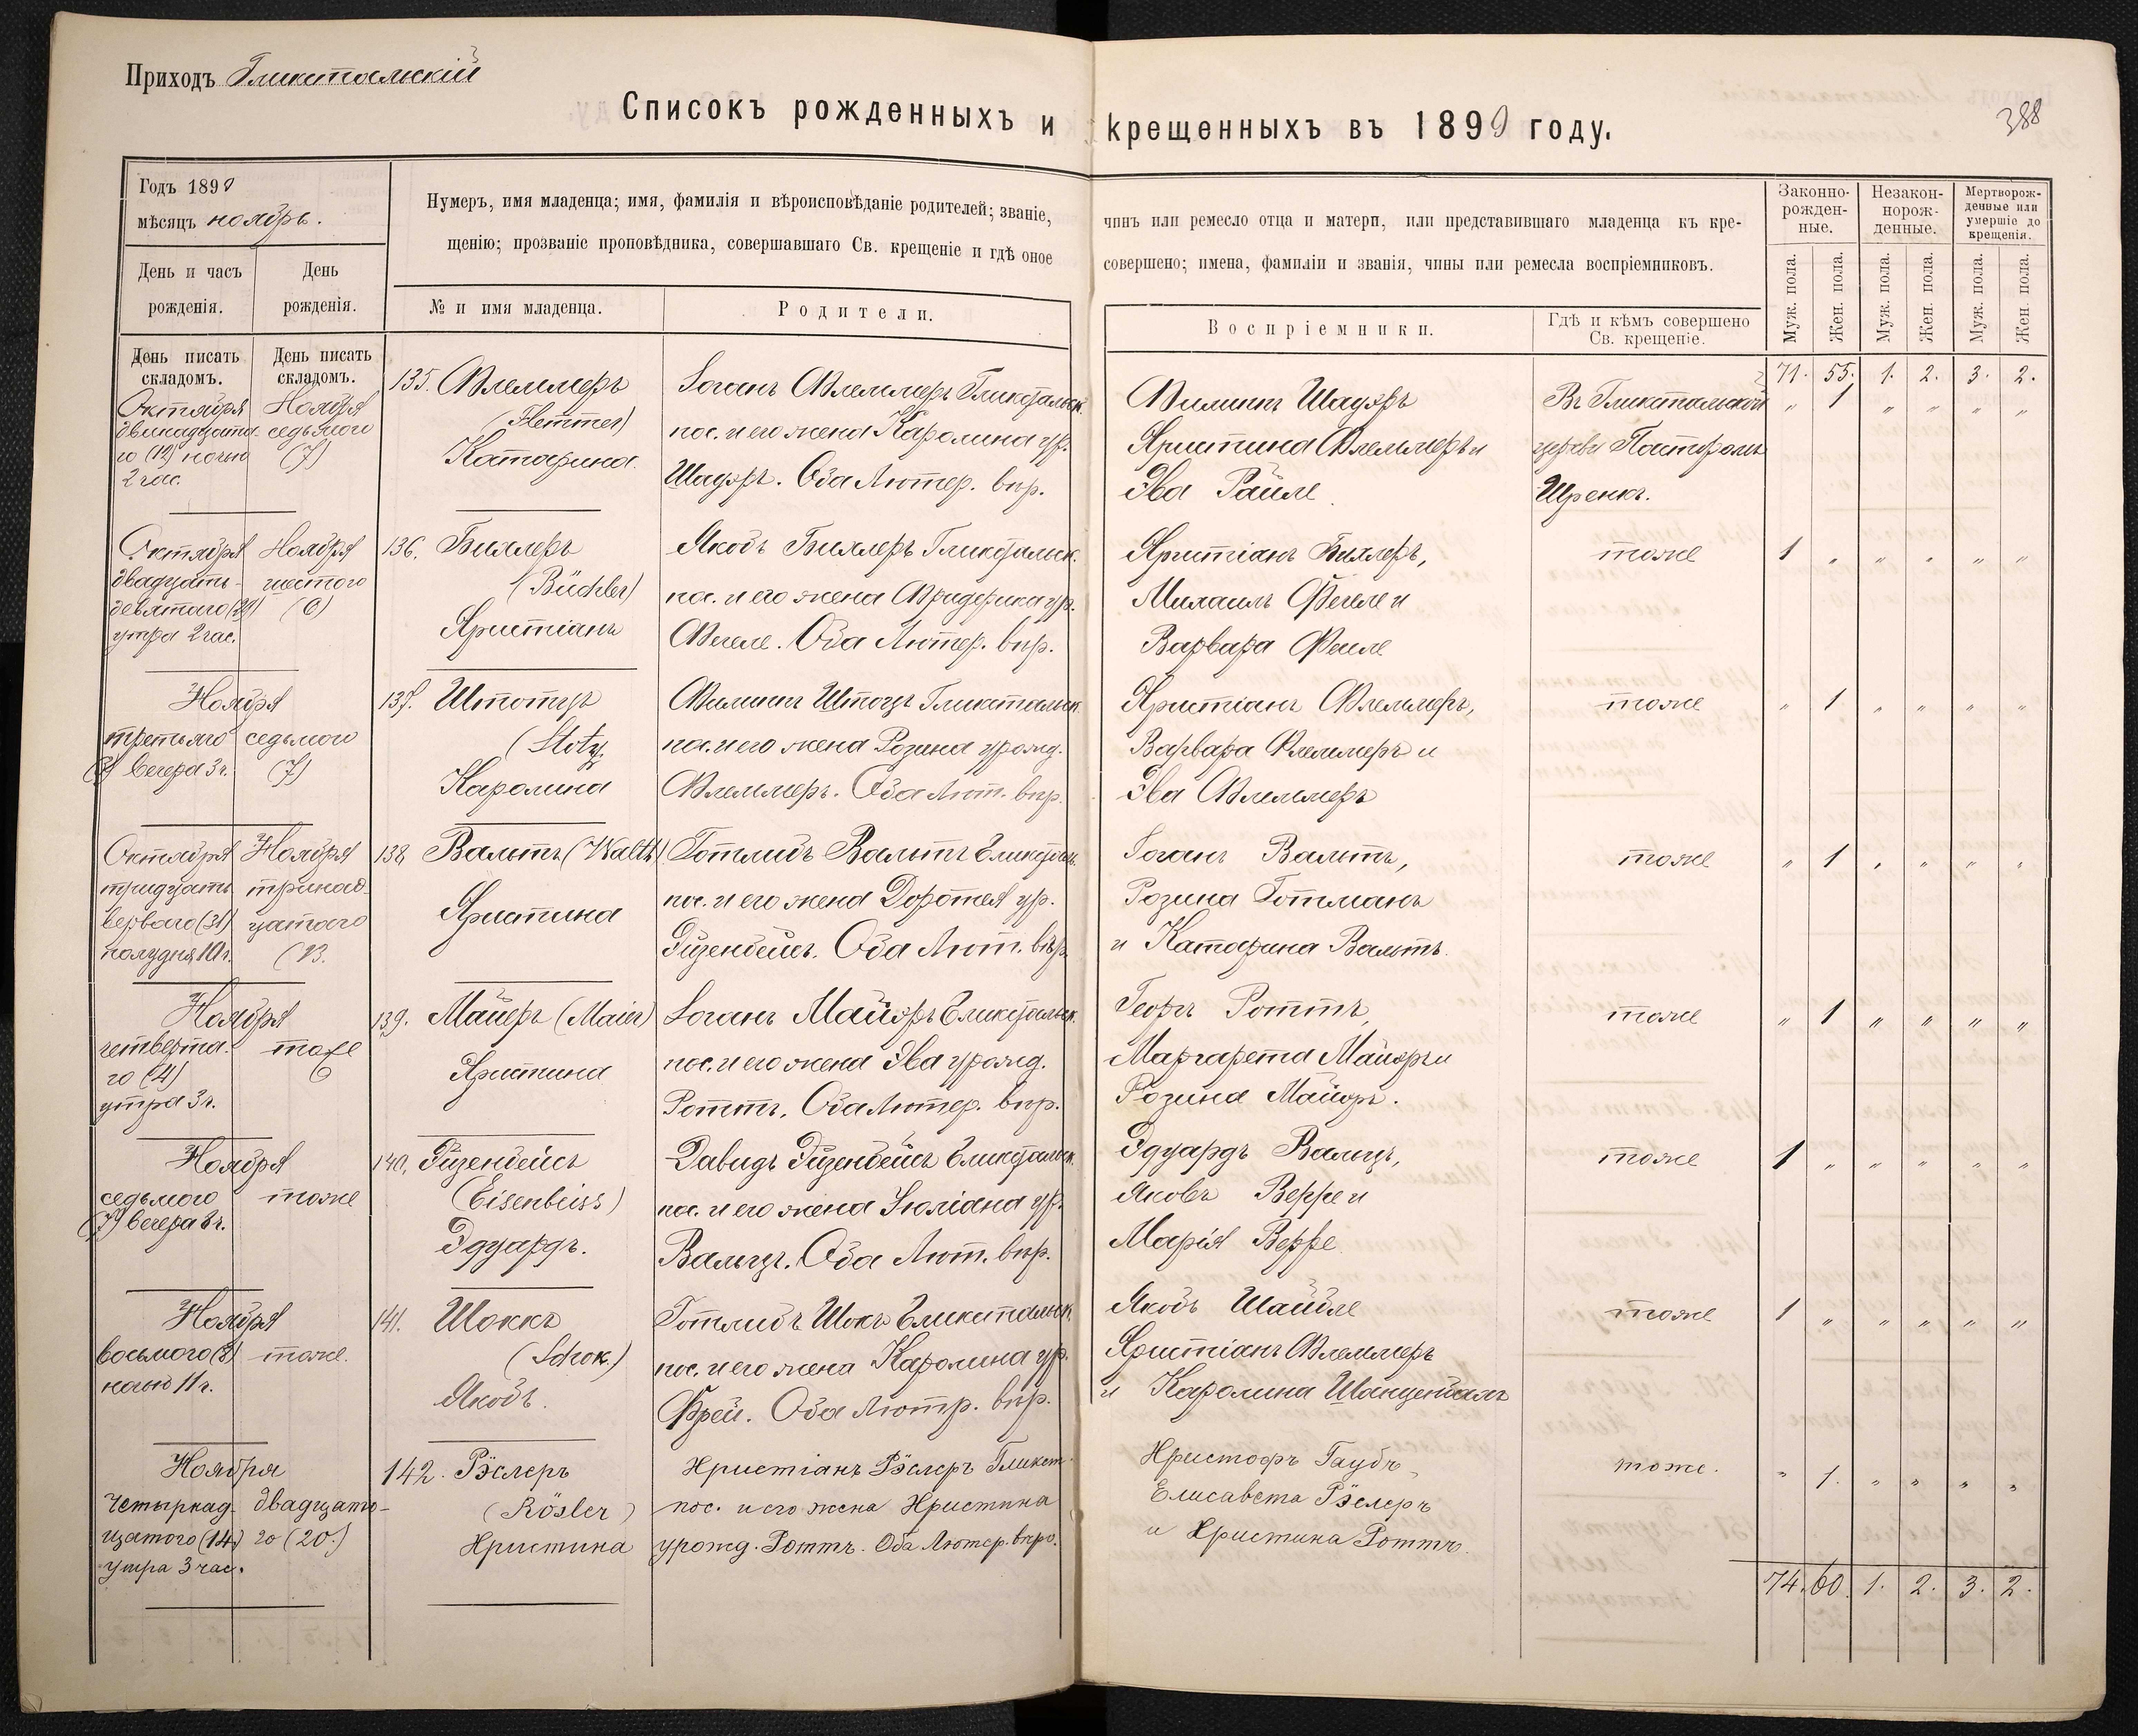 Приходъ Гликстальскій
Списокъ рожденныхъ и крещенныхъ въ 1899 году.
388
Годъ 1899
мѣсяцъ ноябрь.
Нумеръ, имя младенца; имя, фамилія и вѣроисповѣданіе родителей; званіе,
щенію; прозваніе проповѣдника, совершавшаго Св. крещеніе и гдѣ оное
чинъ или ремесло отца и матери, или представившаго младенца къ кре-
совершено; имена, фамиліи и званія, чины или ремесла воспріемниковъ.
День и часъ
рожденія.
День
рожденія.
№ и имя младенца.
Родители.
Воспріемники.
Гдѣ и кѣмъ совершено
Св. крещеніе.
Законно-
рожден-
ные.
Незакон-
норож-
денные.
Мертворож-
денные или
умершіе до
крещенія.
Муж. пола.
Жен. пола.
Муж. пола.
Жен. пола.
Муж. пола.
Жен. пола.
День писать
складомъ.
День писать
складомъ.
71. 55. 1. 2. 3. 2.
Октября
двенадцата-
го (12) ночью
2 час.
Ноября
седьмого
(7)
135. Флеммеръ
(Flemmer)
Катарина.
Іоганъ Флеммеръ Гликстальск.
пос. и его жена Каролина ур.
Шадэръ. Оба Лютер. вѣр.
Филиппъ Шадэръ
Христина Флеммеръ и
Эва Райле
Въ Гликстальской
церкви Пасторомъ
Шренкъ.
" 1 " " " "
Октября
двадцать-
девятого (29)
утра 2 час.
Ноября
шестого
(6)
136. Бихлеръ
(Büchler)
Христіанъ
Якобъ Бихлеръ Гликстальск.
пос. и его жена Фридерика ур.
Фегеле. Оба Лютер. вѣр.
Христіанъ Бихлеръ,
Михаилъ Фегеле и
Варвара Фегеле
тоже
1 " " " " "
Ноября
третьяго
(3) вечера 3 ч.
седьмого
(7)
137. Штотцъ
(Stotz.
Каролина
Филиппъ Штоцъ Гликстальск.
пос. и его жена Розина урожд.
Флеммеръ. Оба Лют. вѣр.
Христіанъ Флеммеръ,
Варвара Флеммеръ и
Эва Флеммеръ
тоже
" 1 " " " "
Октября
тридцать
перваго (31)
полудня 10 ч.
Ноября
тринад-
цатого
(13.
138. Вальтъ (Walth)
Христина
Готлибъ Вальтъ Гликсталь.
пос. и его жена Доротея ур.
Эйзенбейсъ. Оба Лют. вѣр.
Іоганъ Вальтъ,
Розина Готманъ
и Катарина Вальтъ.
тоже
" 1 " " " "
Ноября
четверта-
го (4)
утра 3 ч.
тоже
139. Майеръ (Maier)
Христина
Іоганъ Майэръ Гликстальск.
пос. и его жена Эва урожд.
Роттъ. Оба Лютер. вѣр.
Георгъ Роттъ,
Маргарета Майэръ и
Розина Майэръ.
тоже
" 1 " " " "
Ноября
седьмого
(7) вечера 8 ч.
тоже
140. Эйзенбейсъ
(Eisenbeiss)
Эдуардъ.
Давидъ Эйзенбейсъ Гликстальск.
пос. и его жена Юліана ур.
Вальцъ. Оба Лют. вѣр.
Эдуардъ Вальцъ,
Яковъ Верре и
Марія Верре
тоже
1 " " " " "
Ноября
восьмого (8)
ночью 11 ч.
тоже.
141. Шоккъ
(Schok.)
Якобъ.
Готлибъ Шокъ Гликстальск.
пос. и его жена Каролина ур.
Фрей. Оба Лютр. вѣр.
Якобъ Шайбле
Христіанъ Флеммеръ
и Каролина
тоже
1 " " " " "
Ноября
четырнад-
цатого (14)
утра 3 час.
двадцато-
го (20.)
142. Рэслеръ
(Rösler)
Христина
Христіанъ Рэслеръ Гликст.
пос. и его жена Христина
урожд. Роттъ. Оба Лютер. вѣро.
Христофъ Гаубъ,
Елисавета Рэслеръ
и Христина Роттъ.
тоже.
" 1. " " " "
74. 60. 1. 2. 3. 2.